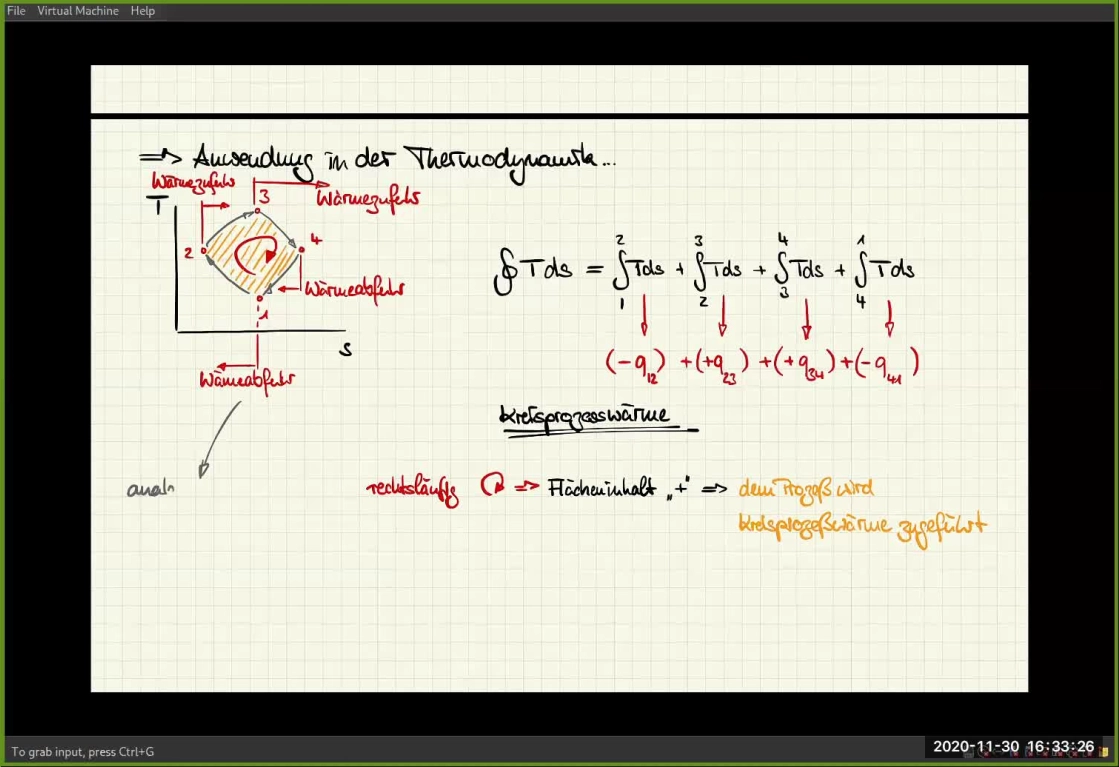 File Virtual Machine Help
=> Anwendung in der Thermodynamik...
Wärmezufuhr
3
Wärmezufuhr
T
2
4
Wärmeabfuhr
1
s
Wärmeabfuhr
∮ Tds = ∫₁² Tds + ∫₂³ Tds + ∫₃⁴ Tds + ∫₄¹ Tds
(-q₁₂) + (+q₂₃) + (+q₃₄) + (-q₄₁)
Kreisprozesswärme
rechtsläufig => Flächeninhalt „+" => dem Prozeß wird
Kreisprozeßwärme zugeführt
analo
To grab input, press Ctrl+G
2020-11-30 16:33:26